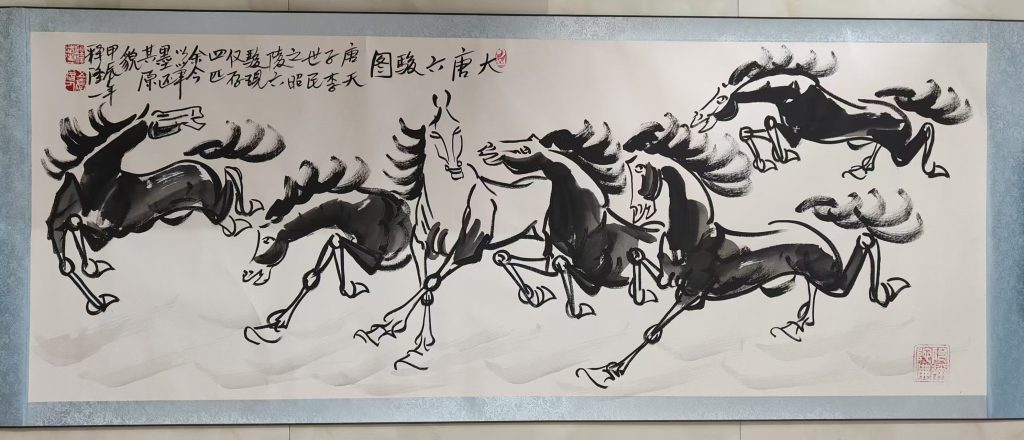 大唐六骏图
唐天
子李
世民
之昭
陵六
骏现
仅存
四匹
余今
以筆
墨还
其原
貌
甲辰年
释隆一